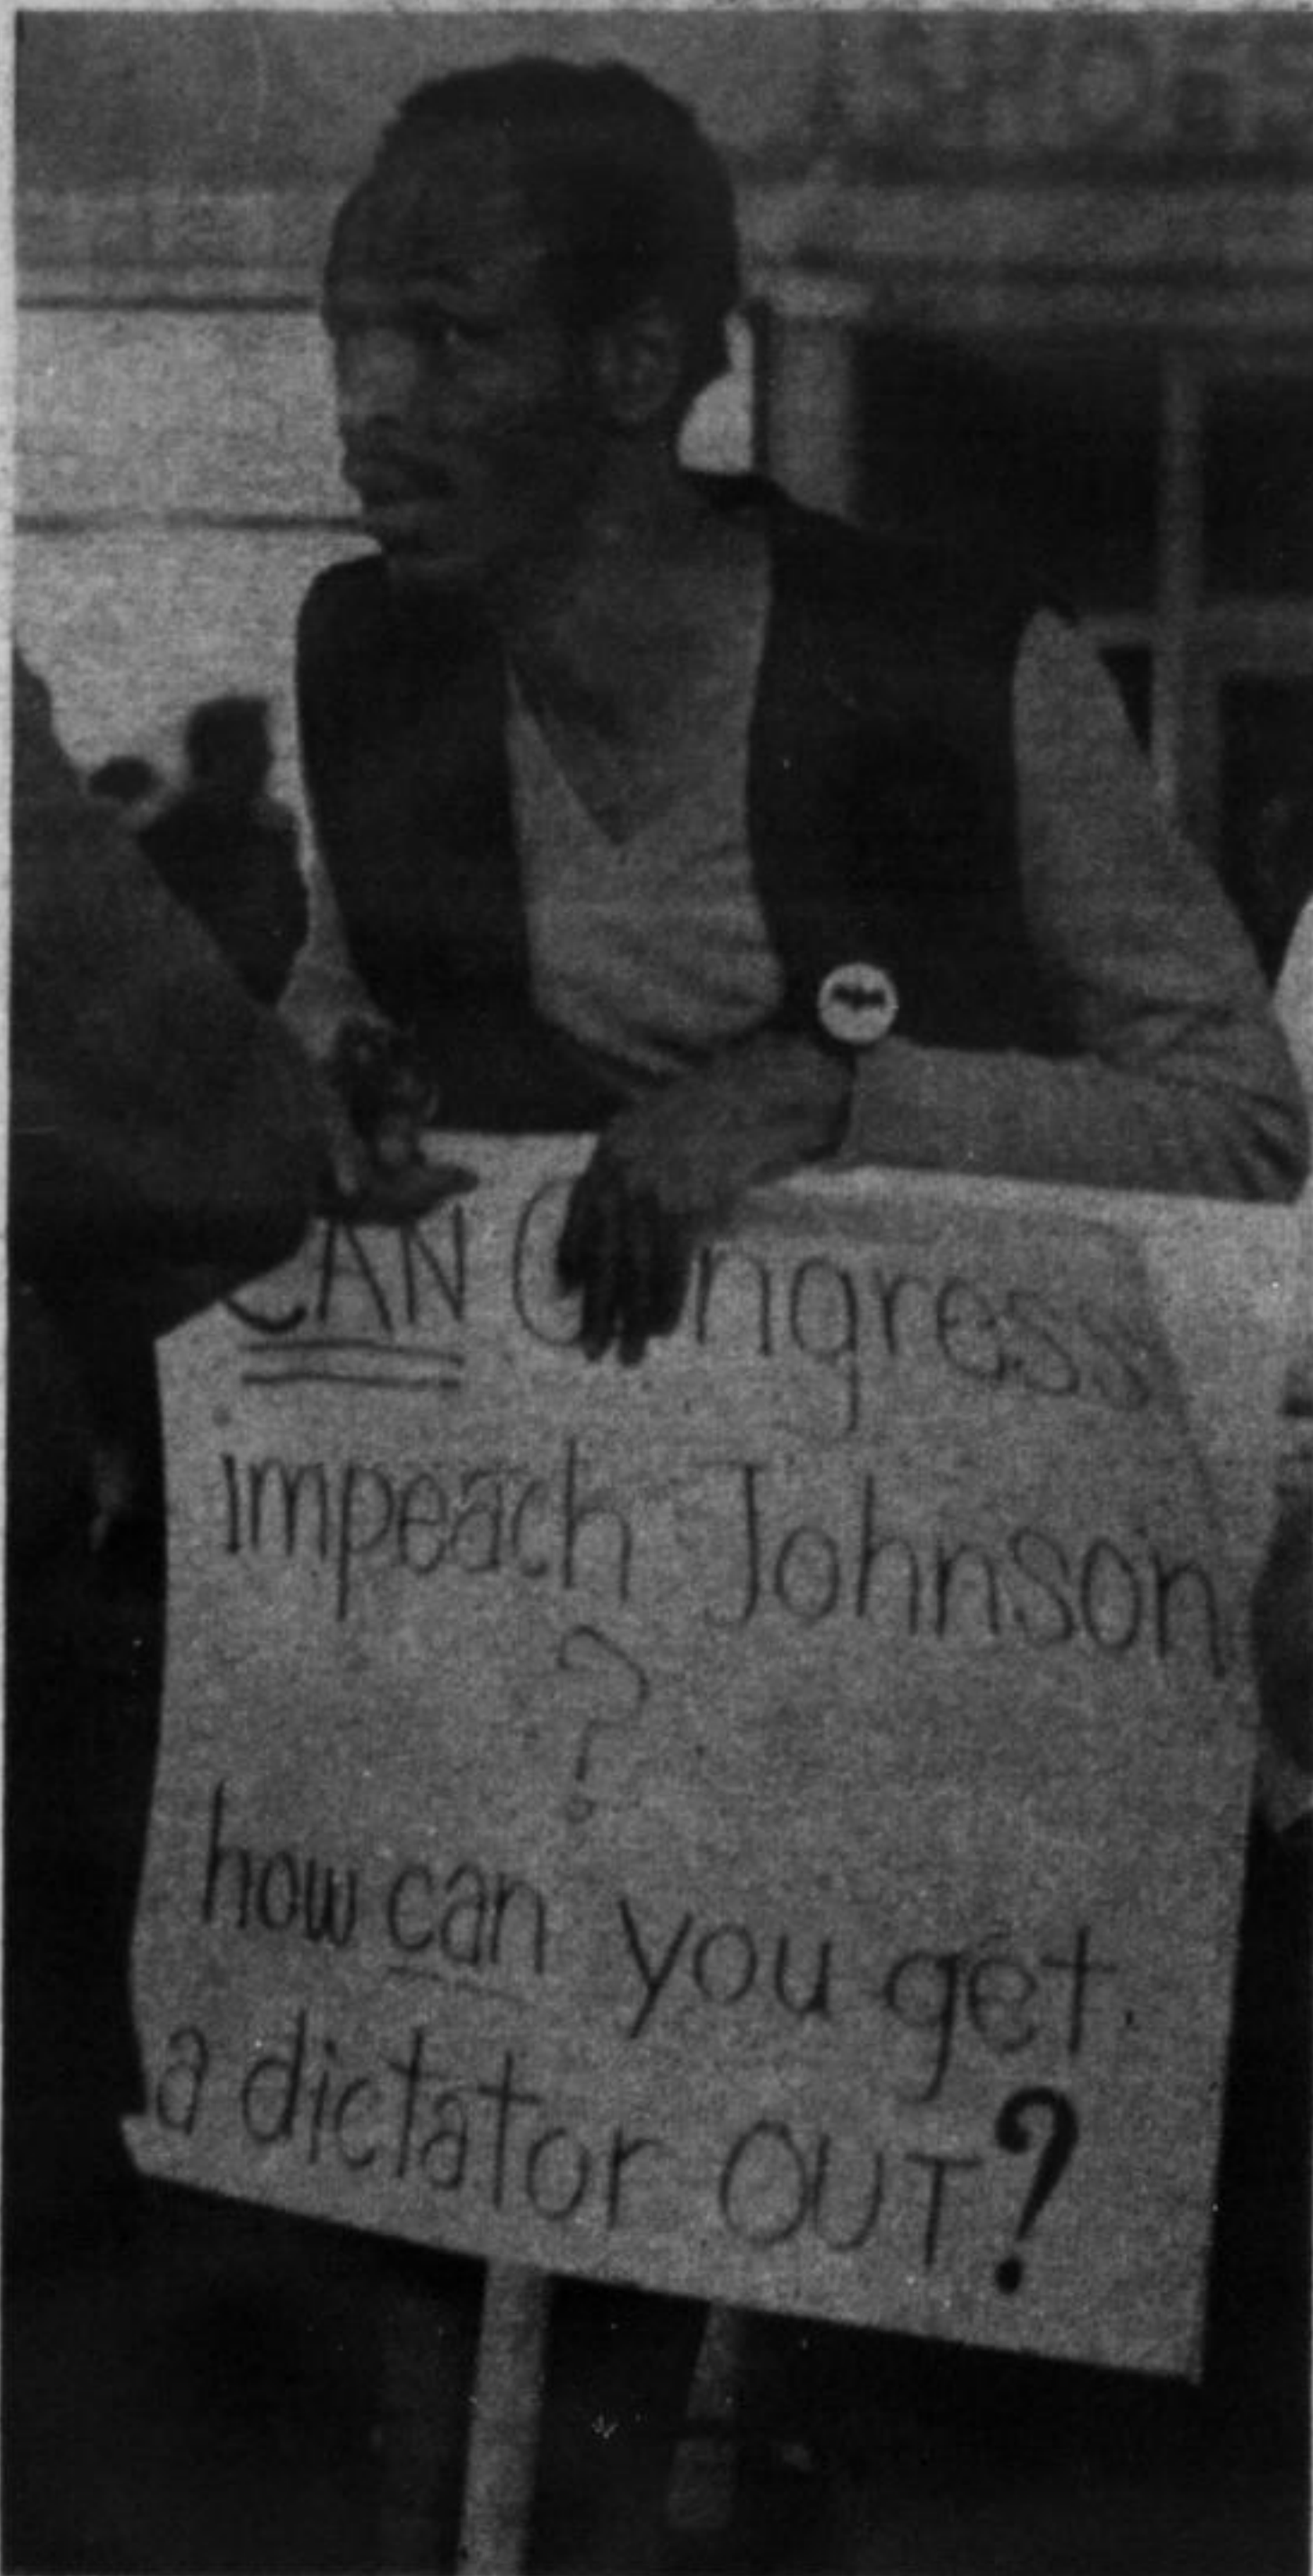 CAN Congress
impeach Johnson
?
how can you get
a dictator OUT?